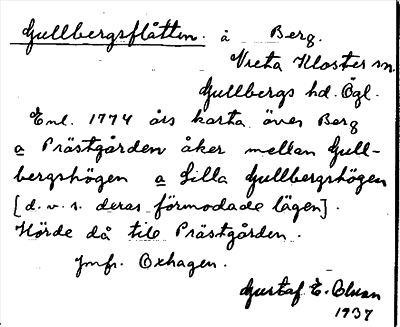 Gullbergsflåtten. å Berg.
Vreta Kloster sn.
Gullbergs hd. Ögl.
Enl. 1774 års karta över Berg
a Prästgården åker mellan Gull-
bergshögen a Lilla Gullbergshögen
[d.v.s. deras förmodade lägen].
Hörde då till Prästgården.
Jmfr. Oxhagen.
Gustaf E. Olsson
1937